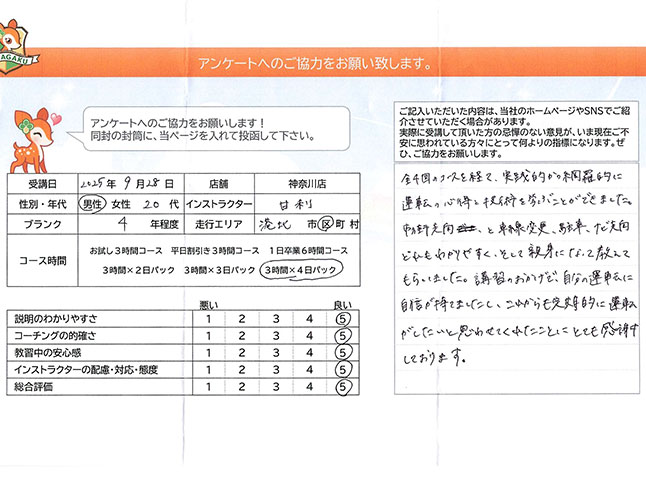 アンケートへのご協力をお願い致します。
アンケートへのご協力をお願いします！
同封の封筒に、当ページを入れて投函して下さい。
受講日 2025年 9月 28日 店舗 神奈川店
性別・年代 男性 女性 20 代 インストラクター 甘利
ブランク 4 年程度 走行エリア 港北 市 区 町 村
コース時間
お試し3時間コース 平日割引き3時間コース 1日卒業6時間コース
3時間×2日パック 3時間×3日パック 3時間×4日パック
悪い 良い
説明のわかりやすさ 1 2 3 4 5
コーチングの的確さ 1 2 3 4 5
教習中の安心感 1 2 3 4 5
インストラクターの配慮・対応・態度 1 2 3 4 5
総合評価 1 2 3 4 5
ご記入いただいた内容は、当社のホームページやSNSでご紹
介させていただく場合があります。
実際に受講して頂いた方の忌憚のない意見が、いま現在ご不
安に思われている方々にとって何よりの指標になります。ぜ
ひ、ご協力をお願いします。
全4回のコースを経て、実践的かつ網羅的に
運転の心得と技術を学ぶことができました。
と車線変更、駐車、
どれもわかりやすく、そして親身になって教えて
もらいました。講習のおかげで、自分の運転に
自信が持てましたし、これからも定期的に運転
がしたいと思わせてくれたことにとても感謝
しております。